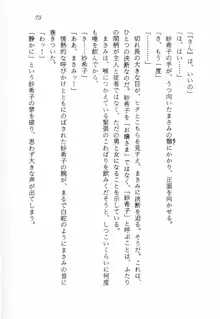 73
「『さん』は、いいの」
「……紗希子」
紗希子の手が、うつ向いたまさみの顎にかかり、正面を向かせた。
「さ、もう一度」
「………」
切れ長の大きな目が、ヒタとこちらを見据え、まさみに決断を迫る。これは、まさみに
ひとつの決断だった。紗希子を「お嬢さま」でなく、「紗希子」と呼ぶことは、ふたり
の間柄が主人と従者ではなく、ただの男と女になることを意味する。
も唾を飲んで、まさみは喉に絡まっている緊張のこわばりを飲みくだし、しつこいくらいに何度
「紗希子」
「ああ、まさみっ――」
情熱的な呼びかけとともに、紗希子の腕が、まるで白蛇のようにまさみの首に
巻きついた。
「静かに」という紗希子の禁を破り、思わず大きな声が出てしまう。